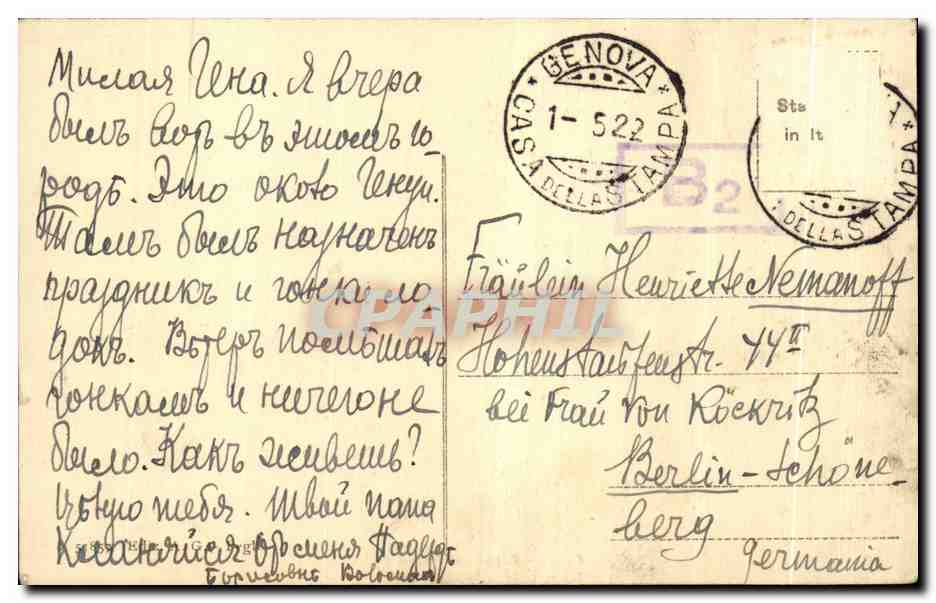 Милая Гена. Я вчера
былъ въ этомъ го-
родѣ. Это около Генуи.
Тамъ былъ назначенъ
праздникъ и гонка ло
докъ. Вѣтеръ помѣшалъ
гонкамъ и ничего не
было. Какъ живешь?
Цѣлую тебя. Твой папа
Кланяйся отъ меня Надеждѣ
Борисовнѣ
GENOVA
1-5 22
CASA DELLA STAMPA
B2
Sta
in It
DELLA STAMPA
Fräulein Henriette Nemanoff
Hohenstaufenstr. 44 II
bei Frau von Röckritz
Berlin-Schöne-
berg
Germania
CPAPHIL